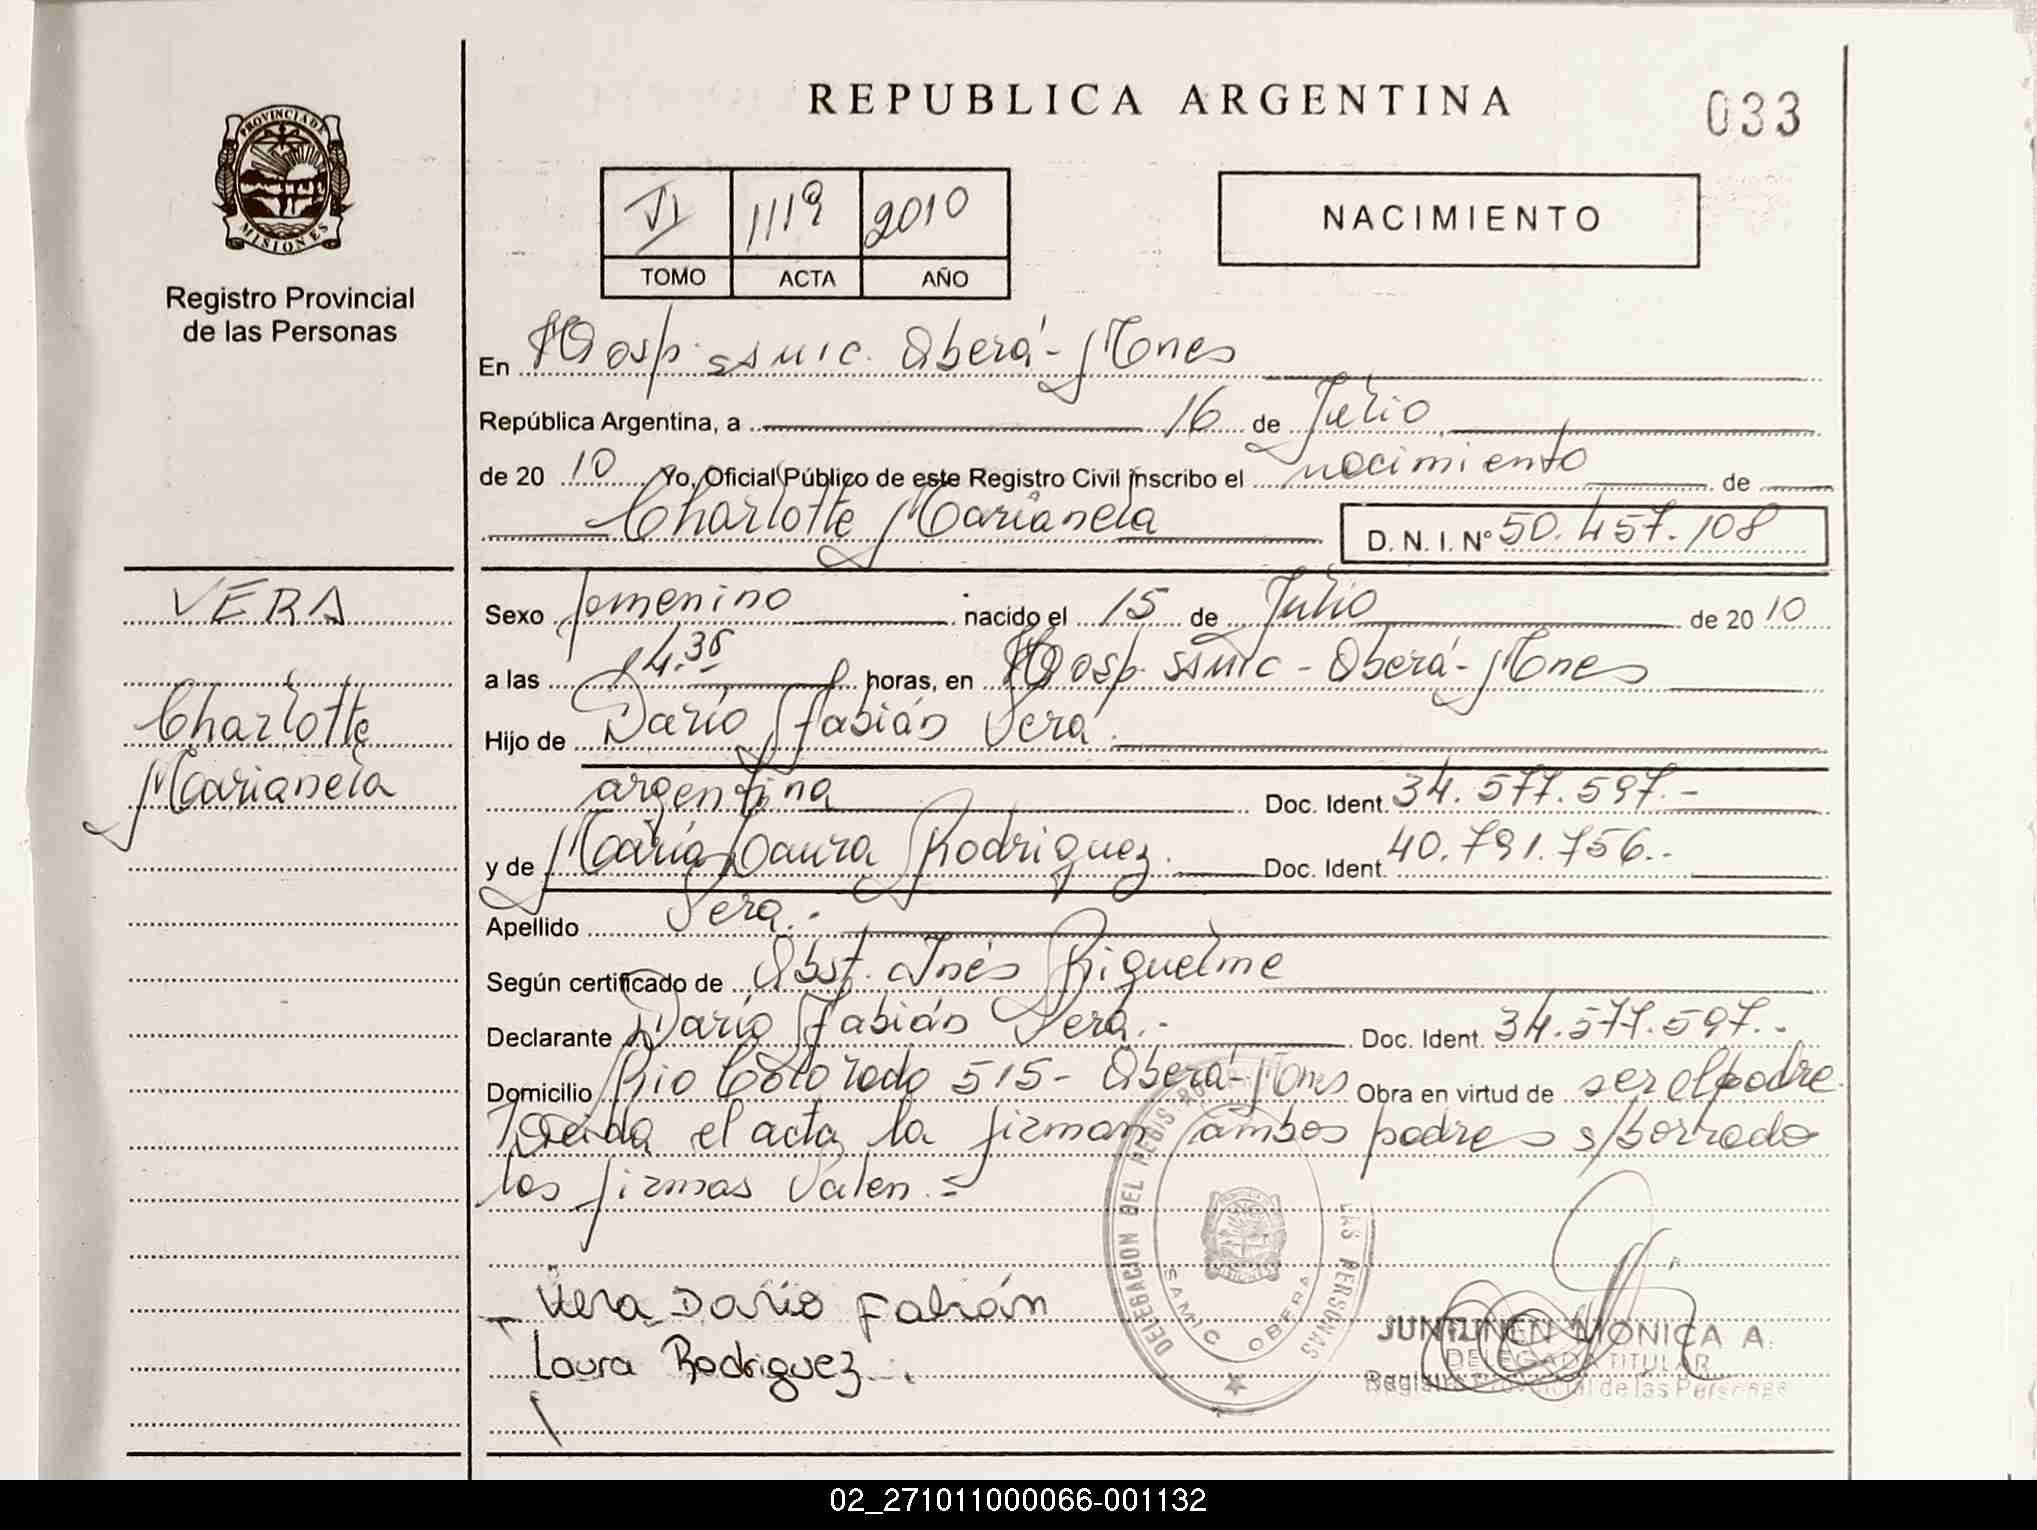 REPUBLICA ARGENTINA
033
PROVINCIA DE
MISIONES
Registro Provincial
de las Personas
VI 1119 2010
TOMO ACTA AÑO
NACIMIENTO
En Hosp. SAMIC. Oberá - Mnes
República Argentina, a 16 de Julio
de 20 10 Yo, Oficial Público de este Registro Civil inscribo el nacimiento de
Charlotte Marianela D. N. I. Nº 50.457.108
VERA
Charlotte
Marianela
Sexo femenino nacido el 15 de Julio de 20 10
a las 14.35 horas, en Hosp. SAMIC - Oberá - Mnes
Hijo de Darío Fabián Vera.
argentina Doc. Ident. 34.577.597.-
y de María Laura Rodriguez. Doc. Ident. 40.791.756.-
Apellido Vera.-
Según certificado de Obst. Inés Riquelme
Declarante Darío Fabián Vera.- Doc. Ident. 34.577.597.-
Domicilio Rio Colorado 515 - Oberá - Mns Obra en virtud de ser el padre
Leida el acta la firman ambos padres s/borrado
las firmas Valen.=
Vera Darío Fabián
Laura Rodriguez.
DELEGACION DEL REGIS LAS PERSONAS
SAMIC OBERA
JUNTUNEN MONICA A.
DELEGADA TITULAR
Registro Provincial de las Personas
02_271011000066-001132